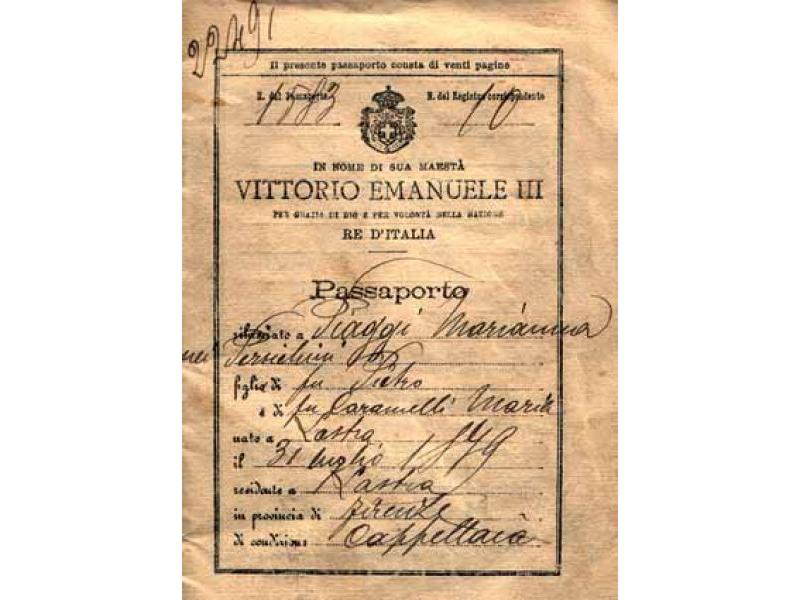 22491
Il presente passaporto consta di venti pagine
N. del Passaporto 1583 N. del Registro corrispondente 10
IN NOME DI SUA MAESTÀ
VITTORIO EMANUELE III
PER GRAZIA DI DIO E PER VOLONTÀ DELLA NAZIONE
RE D'ITALIA
Passaporto
rilasciato a Piaggi Marianna
nei Persichini
figlio di fu Pietro
e di fu Caramelli Maria
nato a Lastra
il 31 luglio 1879
residente a Lastra
in provincia di Firenze
di condizione Cappellaia